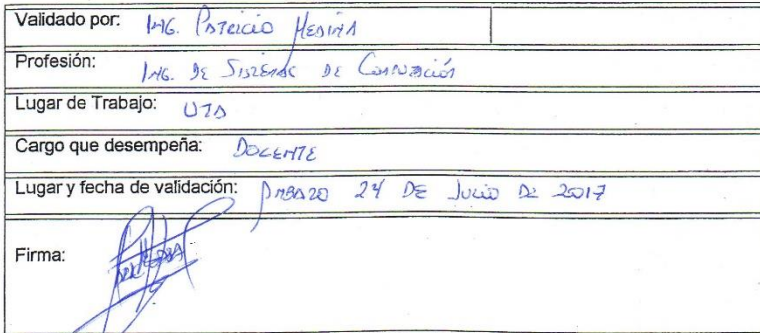 Validado por: ING. PATRICIO MEDINA
Profesión: ING. DE SISTEMAS DE COMPUTACIÓN
Lugar de Trabajo: UTA
Cargo que desempeña: DOCENTE
Lugar y fecha de validación: AMBATO 24 DE JULIO DE 2017
Firma: